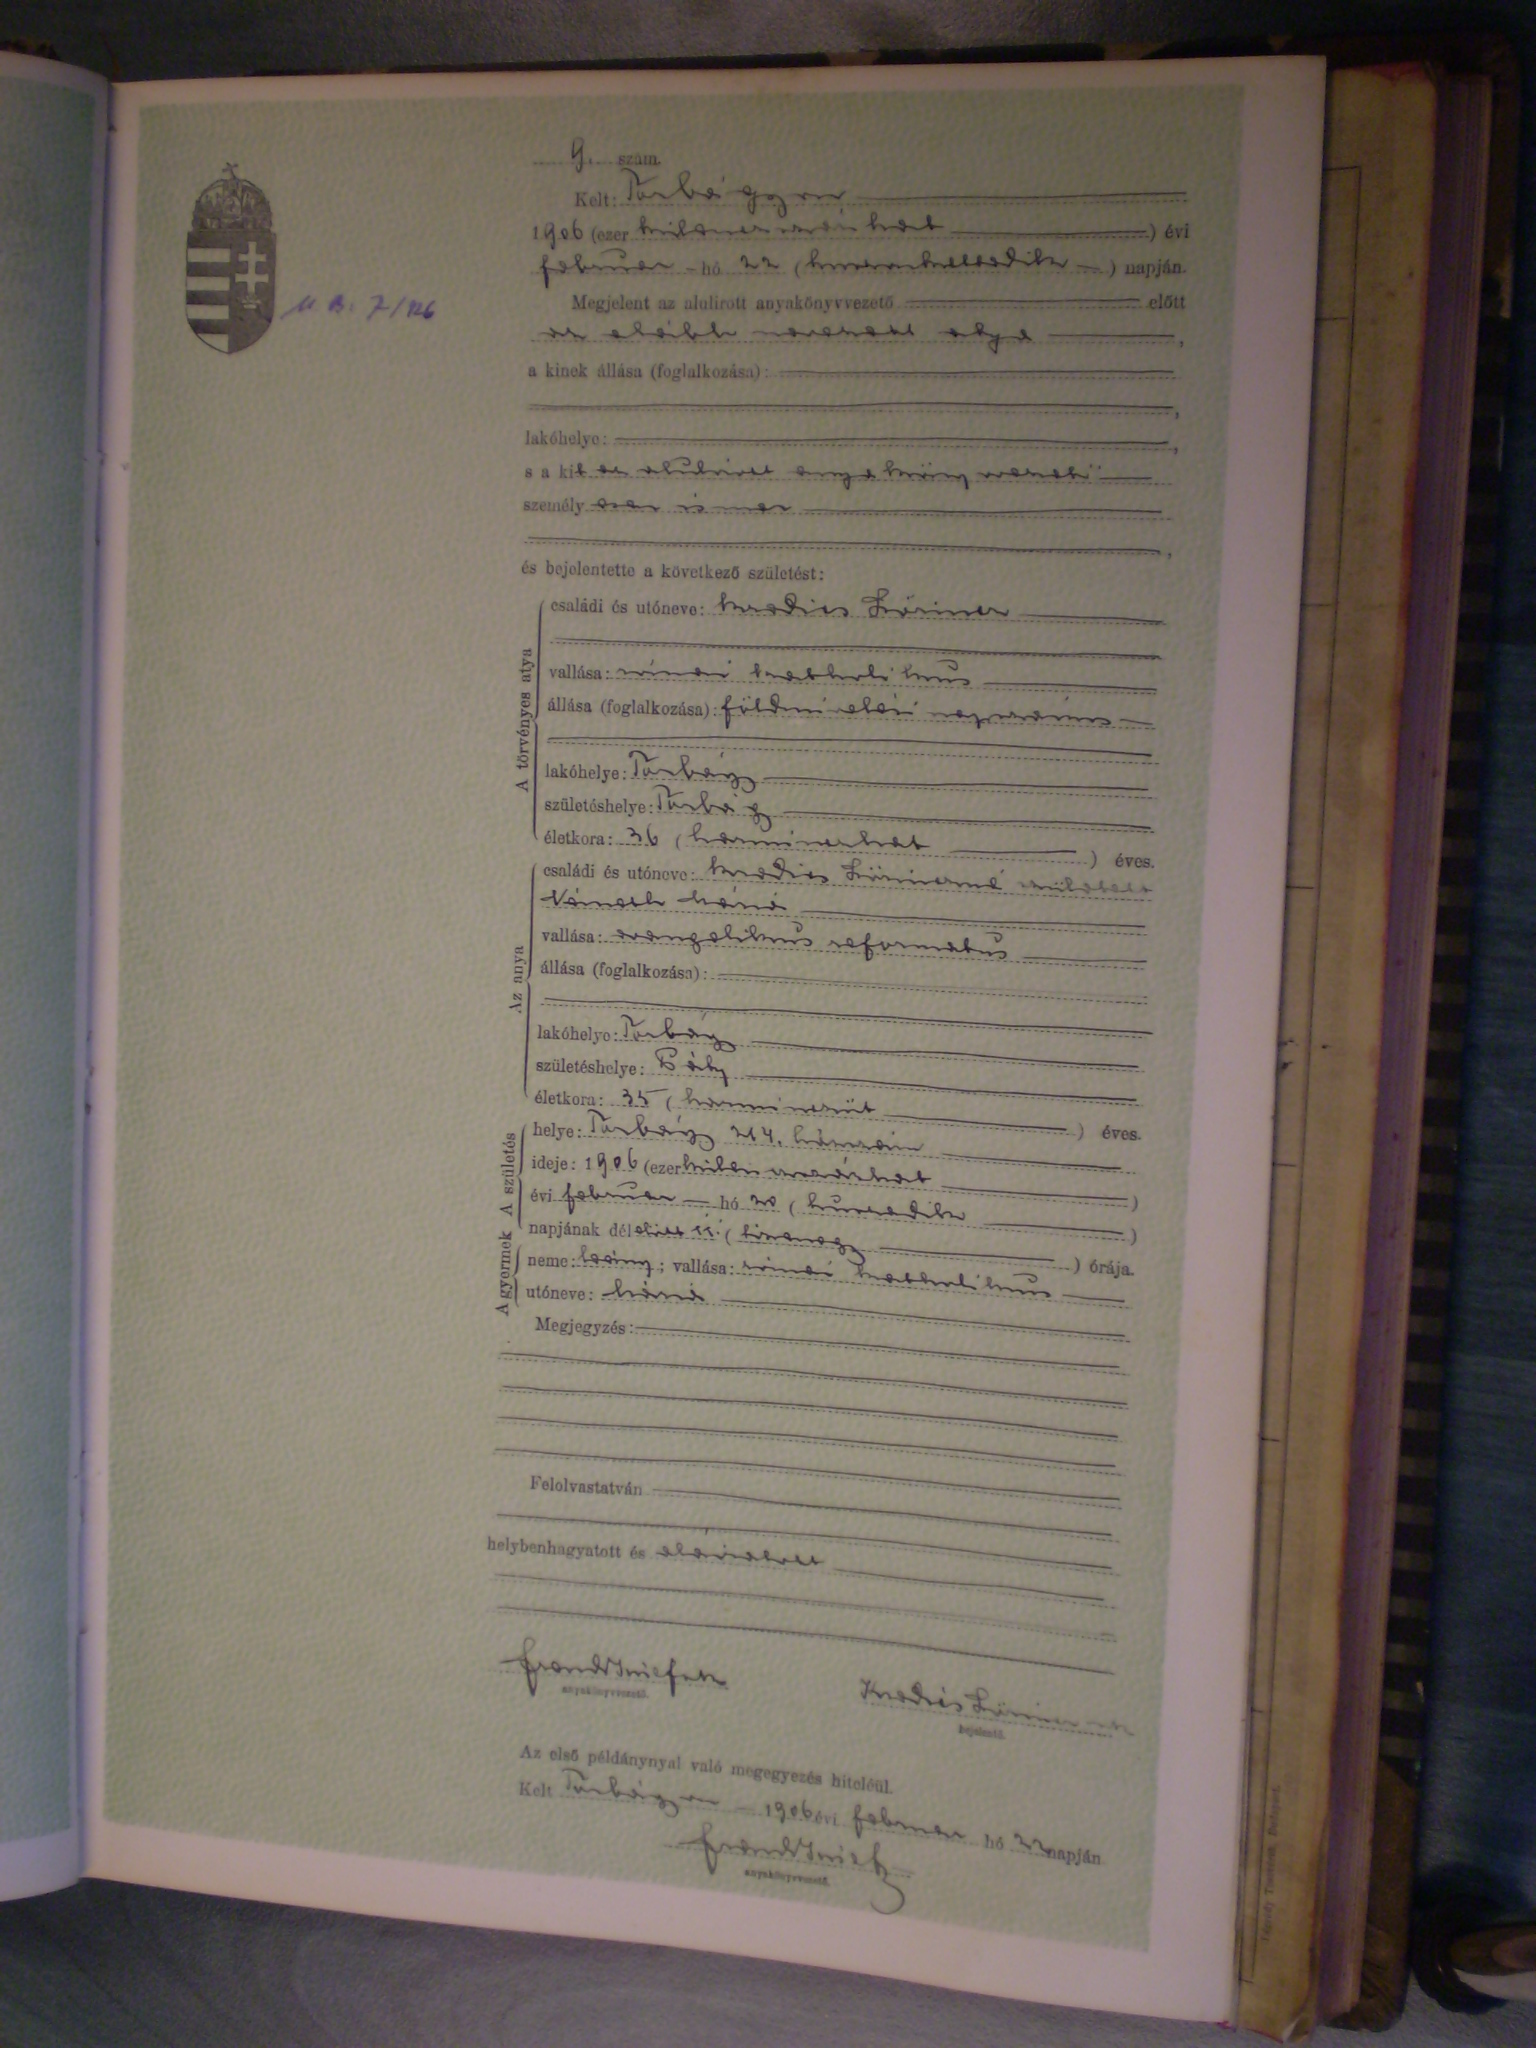 9. szám.
Kelt: Torbágyon
1906 (ezer kilenczszázhat) évi
február hó 22 (huszonkettedik) napján.
Megjelent az alulirott anyakönyvvezető előtt
az alább nevezett atya,
a kinek állása (foglalkozása):
lakóhelye:
s a kit az alulirott anyakönyvvezető
személyesen ismer
és bejelentette a következő születést:
A törvényes atya
családi és utóneve:
vallása: római katholikus
állása (foglalkozása): földmivelési napszámos
lakóhelye: Torbágy
születéshelye: Torbágy
életkora: 36 (harminczhat) éves.
Az anya
családi és utóneve: született
Németh
vallása: evangelikus reformatus
állása (foglalkozása):
lakóhelye: Torbágy
születéshelye:
életkora: 35 (harminczöt) éves.
A születés
helye: Torbágy 214. házszám
ideje: 1906 (ezer kilenczszázhat)
évi február hó 20 (huszadik)
napjának délelőtt 11 (tizenegy) órája.
A gyermek
neme: leány; vallása: római katholikus
utóneve:
Megjegyzés:
Felolvastatván
helybenhagyatott és aláiratott
anyakönyvvezető.
bejelentő.
Az első példánynyal való megegyezés hiteléül.
Kelt Torbágyon 1906 évi február hó 22 napján
anyakönyvvezető.